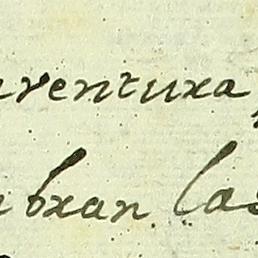 aventura
bran las